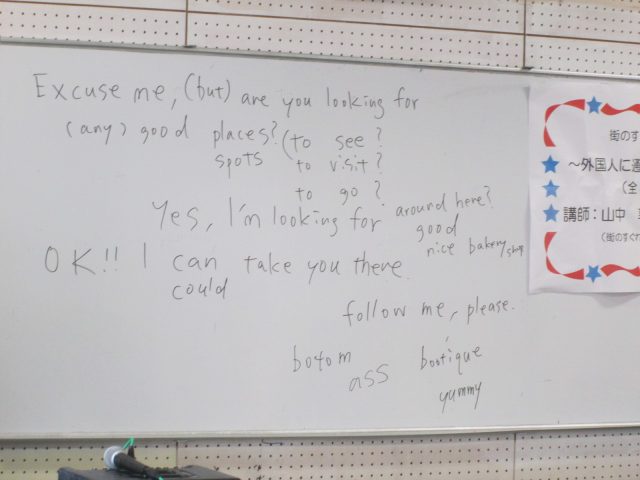 Excuse me, (but) are you looking for
(any) good places? (to see?
spots to visit?
to go?
around here?
Yes, I'm looking for good
nice bakery shop
OK!! I can take you there.
could
follow me, please.
botom bootique
ass
yummy
街のす
～外国人に通
(全
講師：山中
(街のすぐれ